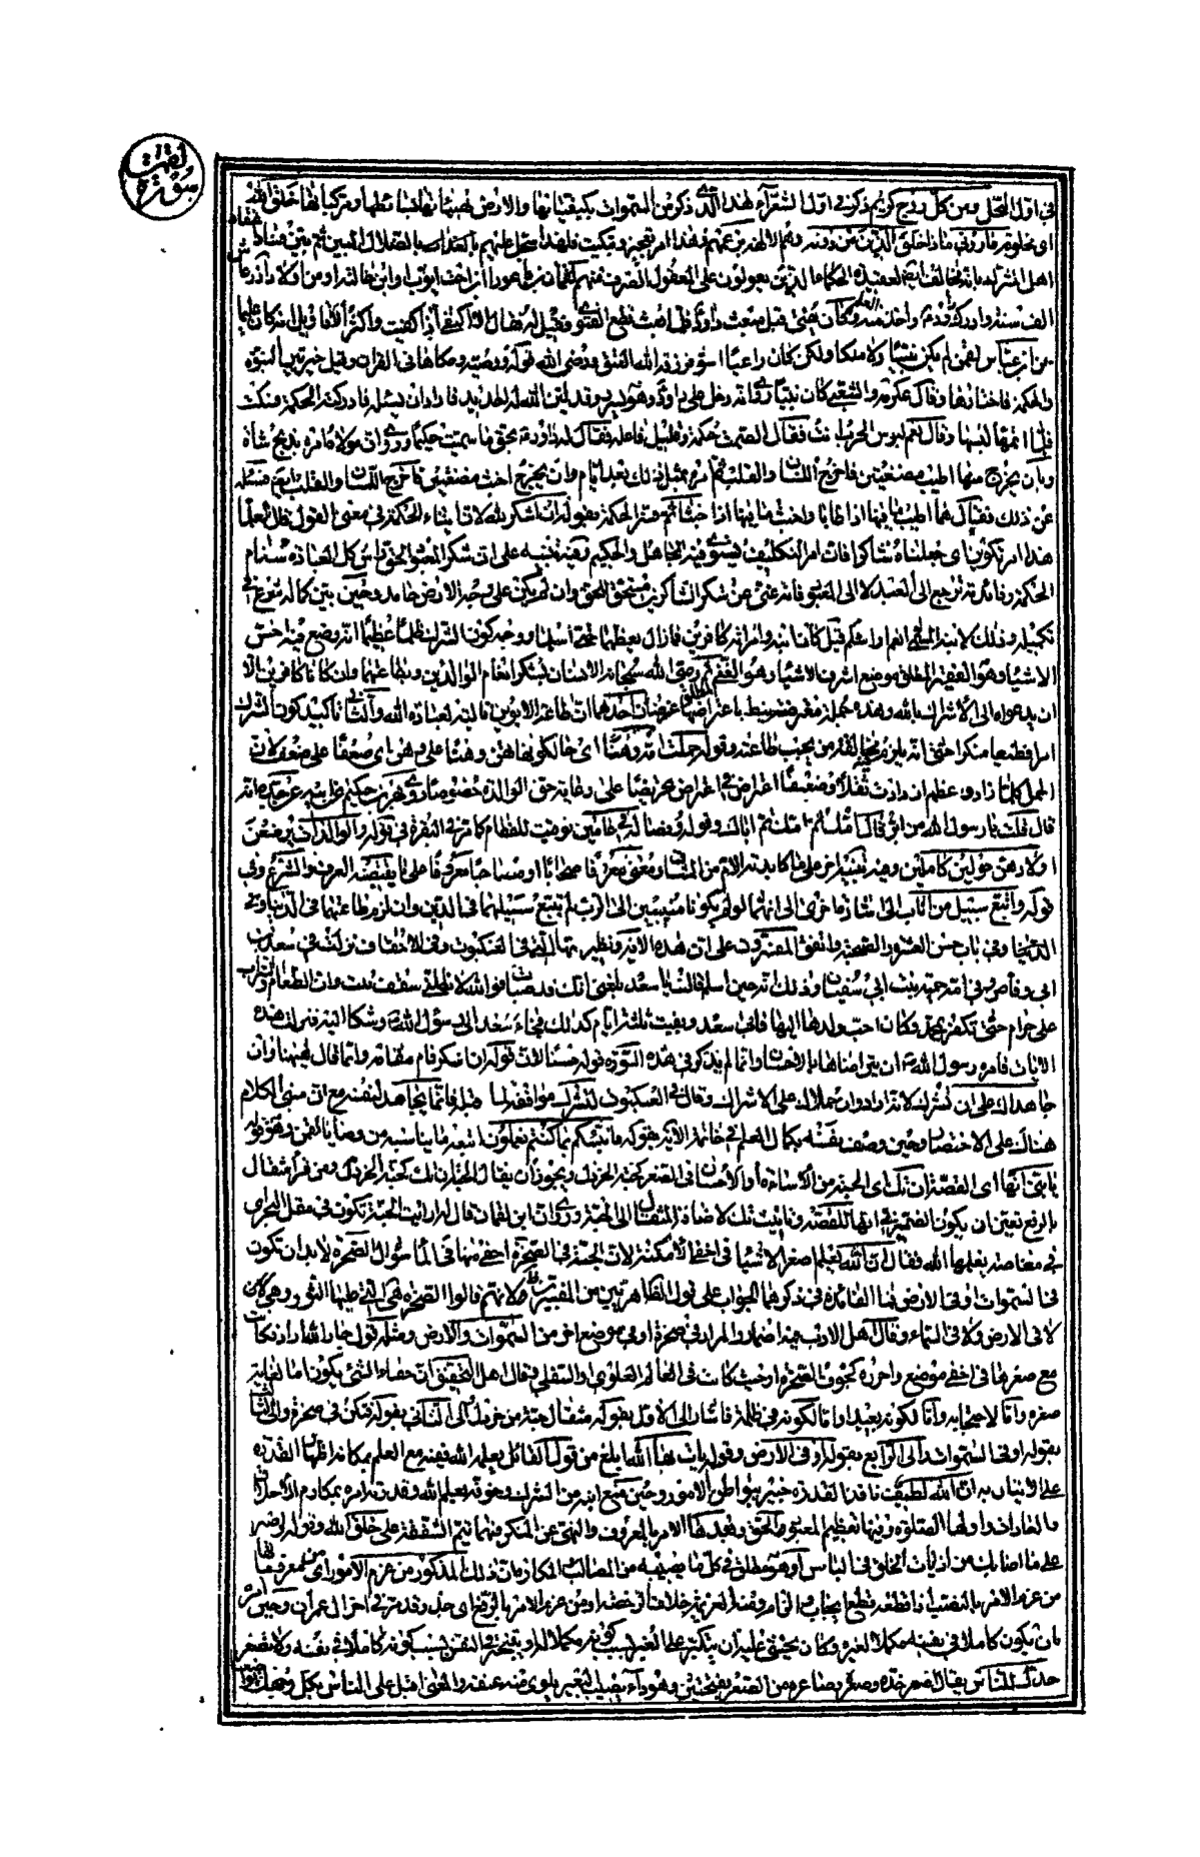 سورة لقمن
في اول النحل ومن كل زوج كريم ذكر في اول الشعراء هذا الذي ذكر من السموات بكيفياتها والارض بهيئاتها بسائطها ومركباتها خلق الله
اي مخلوقه فاروني ماذا خلق الذين من دونه وهم الالهة بزعمهم وهذا امر تعجيز وتبكيت فلهذا سجل عليهم بالضلال المبين ثم بين فساد
اعتقاد اهل الشرك بانه مخالف ايضا لعقيدة الحكماء الذين يعولون على المعقول الصرف منهم لقمان بن باعورا ابن اخت ايوب او ابن خالته او من اولاد آزر عاش
الف سنة وادرك داود وأخذ منه العلم وكان يفتي قبل مبعث داود فلما بعث قطع الفتوى فقيل له فقال الا اكتفي اذا كفيت واكثر الاقاويل انه كان حكيما
عن ابن عباس لقمن لم يكن نبيا ولا ملكا ولكن كان راعيا اسود فرزقه الله العتق ورضي الله قوله ووصيته وحكاها في القران وقيل خير بين النبوة
والحكمة فاختارها وقال عكرمة والشعبي كان نبيا روي انه دخل على داود وهو يسرد وقد لين الله له الحديد فاراد ان يسئله فادركته الحكمة فسكت
فلما اتمها لبسها وقال نعم لبوس الحرب انت فقال الصمت حكمة وقليل فاعله فقال له داود بحق ما سميت حكيما وروي ان مولاه امره بذبح شاة
وبان يخرج منها اطيب مضغتين فاخرج اللسان والقلب ثم امره بمثل ذلك بعد ايام وان يخرج اخبث مضغتين فاخرج اللسان والقلب ايضا فسئله
عن ذلك فقال هما اطيب ما فيها اذا طابا واخبث ما فيها اذا خبثا ثم فسر الحكمة بقوله ان اشكر لله لان ايتاء الحكمة في معنى القول قال العلماء
هذا امر تكوين اي جعلناه شاكرا فان امر التكليف يستوي فيه الجاهل والحكيم وفيه تنبيه على ان شكر المعبود الحق راس كل العبادة وسنام
الحكمة وفائدته ترجع الى العبد لا الى المعبود فانه غني عن شكر الشاكرين مستحق للحمد وان لم يكن على وجه الارض حامد وحين بين كماله شرع في
تكميله وذلك لابنه المسمى انعم او اشكم قيل كان ابنه وامراته كافرين فما زال يعظهما حتى اسلما ووجه كون الشرك ظلما عظيما انه وضع فيه اخس
الاشياء وهو الفقير المطلق موضع اشرف الاشياء وهو الغني المطلق ثم وصى الله سبحانه الانسان بشكر انعام الوالدين وبطاعتهما وان كانا كافرين الا
ان يدعواه الى الاشراك بالله وهذه جملة معترضة نيط باعتراضها غرضان احدهما ان طاعة الابوين تالية لعبادة الله والثاني تاكيد كون الشرك
امرا فظيعا منكرا حتى انه يلزم فيه مخالفة من يجب طاعته وقوله حملته امه وهنا اي حال كونها تهن وهنا على وهن اي ضعفا على ضعف لان
الحمل كلما زاد وعظم ازدادت ثقلا وضعفا اعتراض في اعتراض تحريضا على رعاية حق الوالدة خصوصا روى بهز بن حكيم عن ابيه عن جده انه
قال قلت يا رسول الله من ابر قال امك ثم امك ثم اباك وقوله وفصاله في عامين توقيت للفطام كما مر في البقرة في قوله والوالدات يرضعن
اولادهن حولين كاملين وفيه تنبيه اخر على ما كابدته الام من المشاق ومعنى معروفا صحابا او مصاحبا معروفا على ما يقتضيه العرف والشرع وفي
قوله واتبع سبيل من اناب الي اشارة اخرى الى انهما لو لم يكونا منيبين الى الرب لم تتبع سبيلهما في الدين وان لزم طاعتهما في الدنيا وفي
الدنيا وفي باب حسن العشرة والصحبة واتفق المفسرون على ان هذه الآية ونظيرتها التي في العنكبوت وفي الاحقاف نزلت في سعد بن
ابي وقاص وفي امه حمنة بنت ابي سفيان وذلك انه حين اسلم قالت يا سعد بلغني انك قد صبأت فوالله لا يظلني سقف بيت وان الطعام والشراب
علي حرام حتى تكفر بمحمد وكان احب ولدها اليها فابى سعد وبقيت ثلثة ايام كذلك فجاء سعد الى رسول الله وشكا اليه فنزلت هذه
الآيات فامره رسول الله ان يترضاها بالاحسان وانما لم يذكر في هذه السورة قوله حسنا لان قوله ان اشكر قام مقامه وانما قال ههنا وان
جاهداك على ان تشرك لانه اراد وان حملاك على الاشراك وقال في العنكبوت لتشرك موافقة لما قبله فانما يجاهد لنفسه مع ان مبنى الكلام
هناك على الاختصار وحين وصف نفسه بكمال العلم في خاتمة الآية بقوله فانبئكم بما كنتم تعملون اتبعه ما يناسبه من وصايا لقمن وهو قوله
يا بني انها اي القصة ان تك اي الحبة من الاساءة او الاحسان في الصغر كحبة الخردل ويجوز ان يقال الحبة ان تك كحبة الخردل ومن قرأ مثقال
بالرفع تعين ان يكون الضمير في انها للقصة وتانيث تك لاضافة المثقال الى الحبة وروي ان ابن لقمان قال له ارايت الحبة تكون في مقل البحر اي
في مغاصه يعلمها الله فقال ان الله يعلم اصغر الاشياء في اخفى الامكنة لان الحبة في الصخرة اخفى منها في الماء سؤال الصخرة لا بد ان تكون
في السموات او في الارض فما الفائدة في ذكرها الجواب على قول الظاهريين من المفسرين ظاهر لانهم قالوا الصخرة هي التي عليها الثور وهي لا
في الارض ولا في السماء وقال اهل الادب فيه اضمار والمراد في صخرة او في موضع اخر من السموات والارض ومثله قول جار الله اراد ان كانت
مع صغرها في اخفى موضع واحرزه كجوف الصخرة او حيث كانت في العالم العلوي والسفلي وقال اهل التحقيق ان خفاء الشئ يكون اما لغاية
صغره واما لاحتجابه واما لكونه بعيدا واما لكونه في ظلمة فاشار الى الاول بقوله مثقال حبة من خردل والى الثاني بقوله فتكن في صخرة والى الثالث
بقوله او في السموات والى الرابع بقوله او في الارض وقوله يات بها الله ابلغ من قول القائل يعلمه الله ففيه مع العلم بمكانه اظهار القدرة
على الاتيان به ان الله لطيف نافذ القدرة خبير ببواطن الامور وحين منع ابنه من الشرك وخوفه بعلم الله وقدرته امره بمكارم الاخلاق
والعادات واولها الصلوة وفيها تعظيم المعبود الحق وبعدها الامر بالمعروف والنهي عن المنكر فبهما تتم الشفقة على خلق الله وقوله واصبر
على ما اصابك من اذيات الخلق في الباس او هو مطلق في كل ما يصيبه من المصائب والمكاره ان ذلك المذكور من عزم الامور اي من معزوماتها
من عزم الامر بالنصب اذا قطعه قطع ايجاب والزام ومنه العزيمة خلاف الرخصة او من عزم الامر بالرفع اي جد وقد مر في اخر ال عمران وحين امر
بان يكون كاملا في نفسه مكملا لغيره وكان يخشى عليه ان يتكبر على الغير بسبب كونه مكملا له او يتبختر في النفس بسبب كونه كاملا في نفسه قال ولا تصعر
خدك للناس يقال اصعر خده وصعره وصاعره من الصعر بفتحتين وهو داء يصيب البعير يلوي منه عنقه والمعنى اقبل على الناس بكل وجهك تواضعا